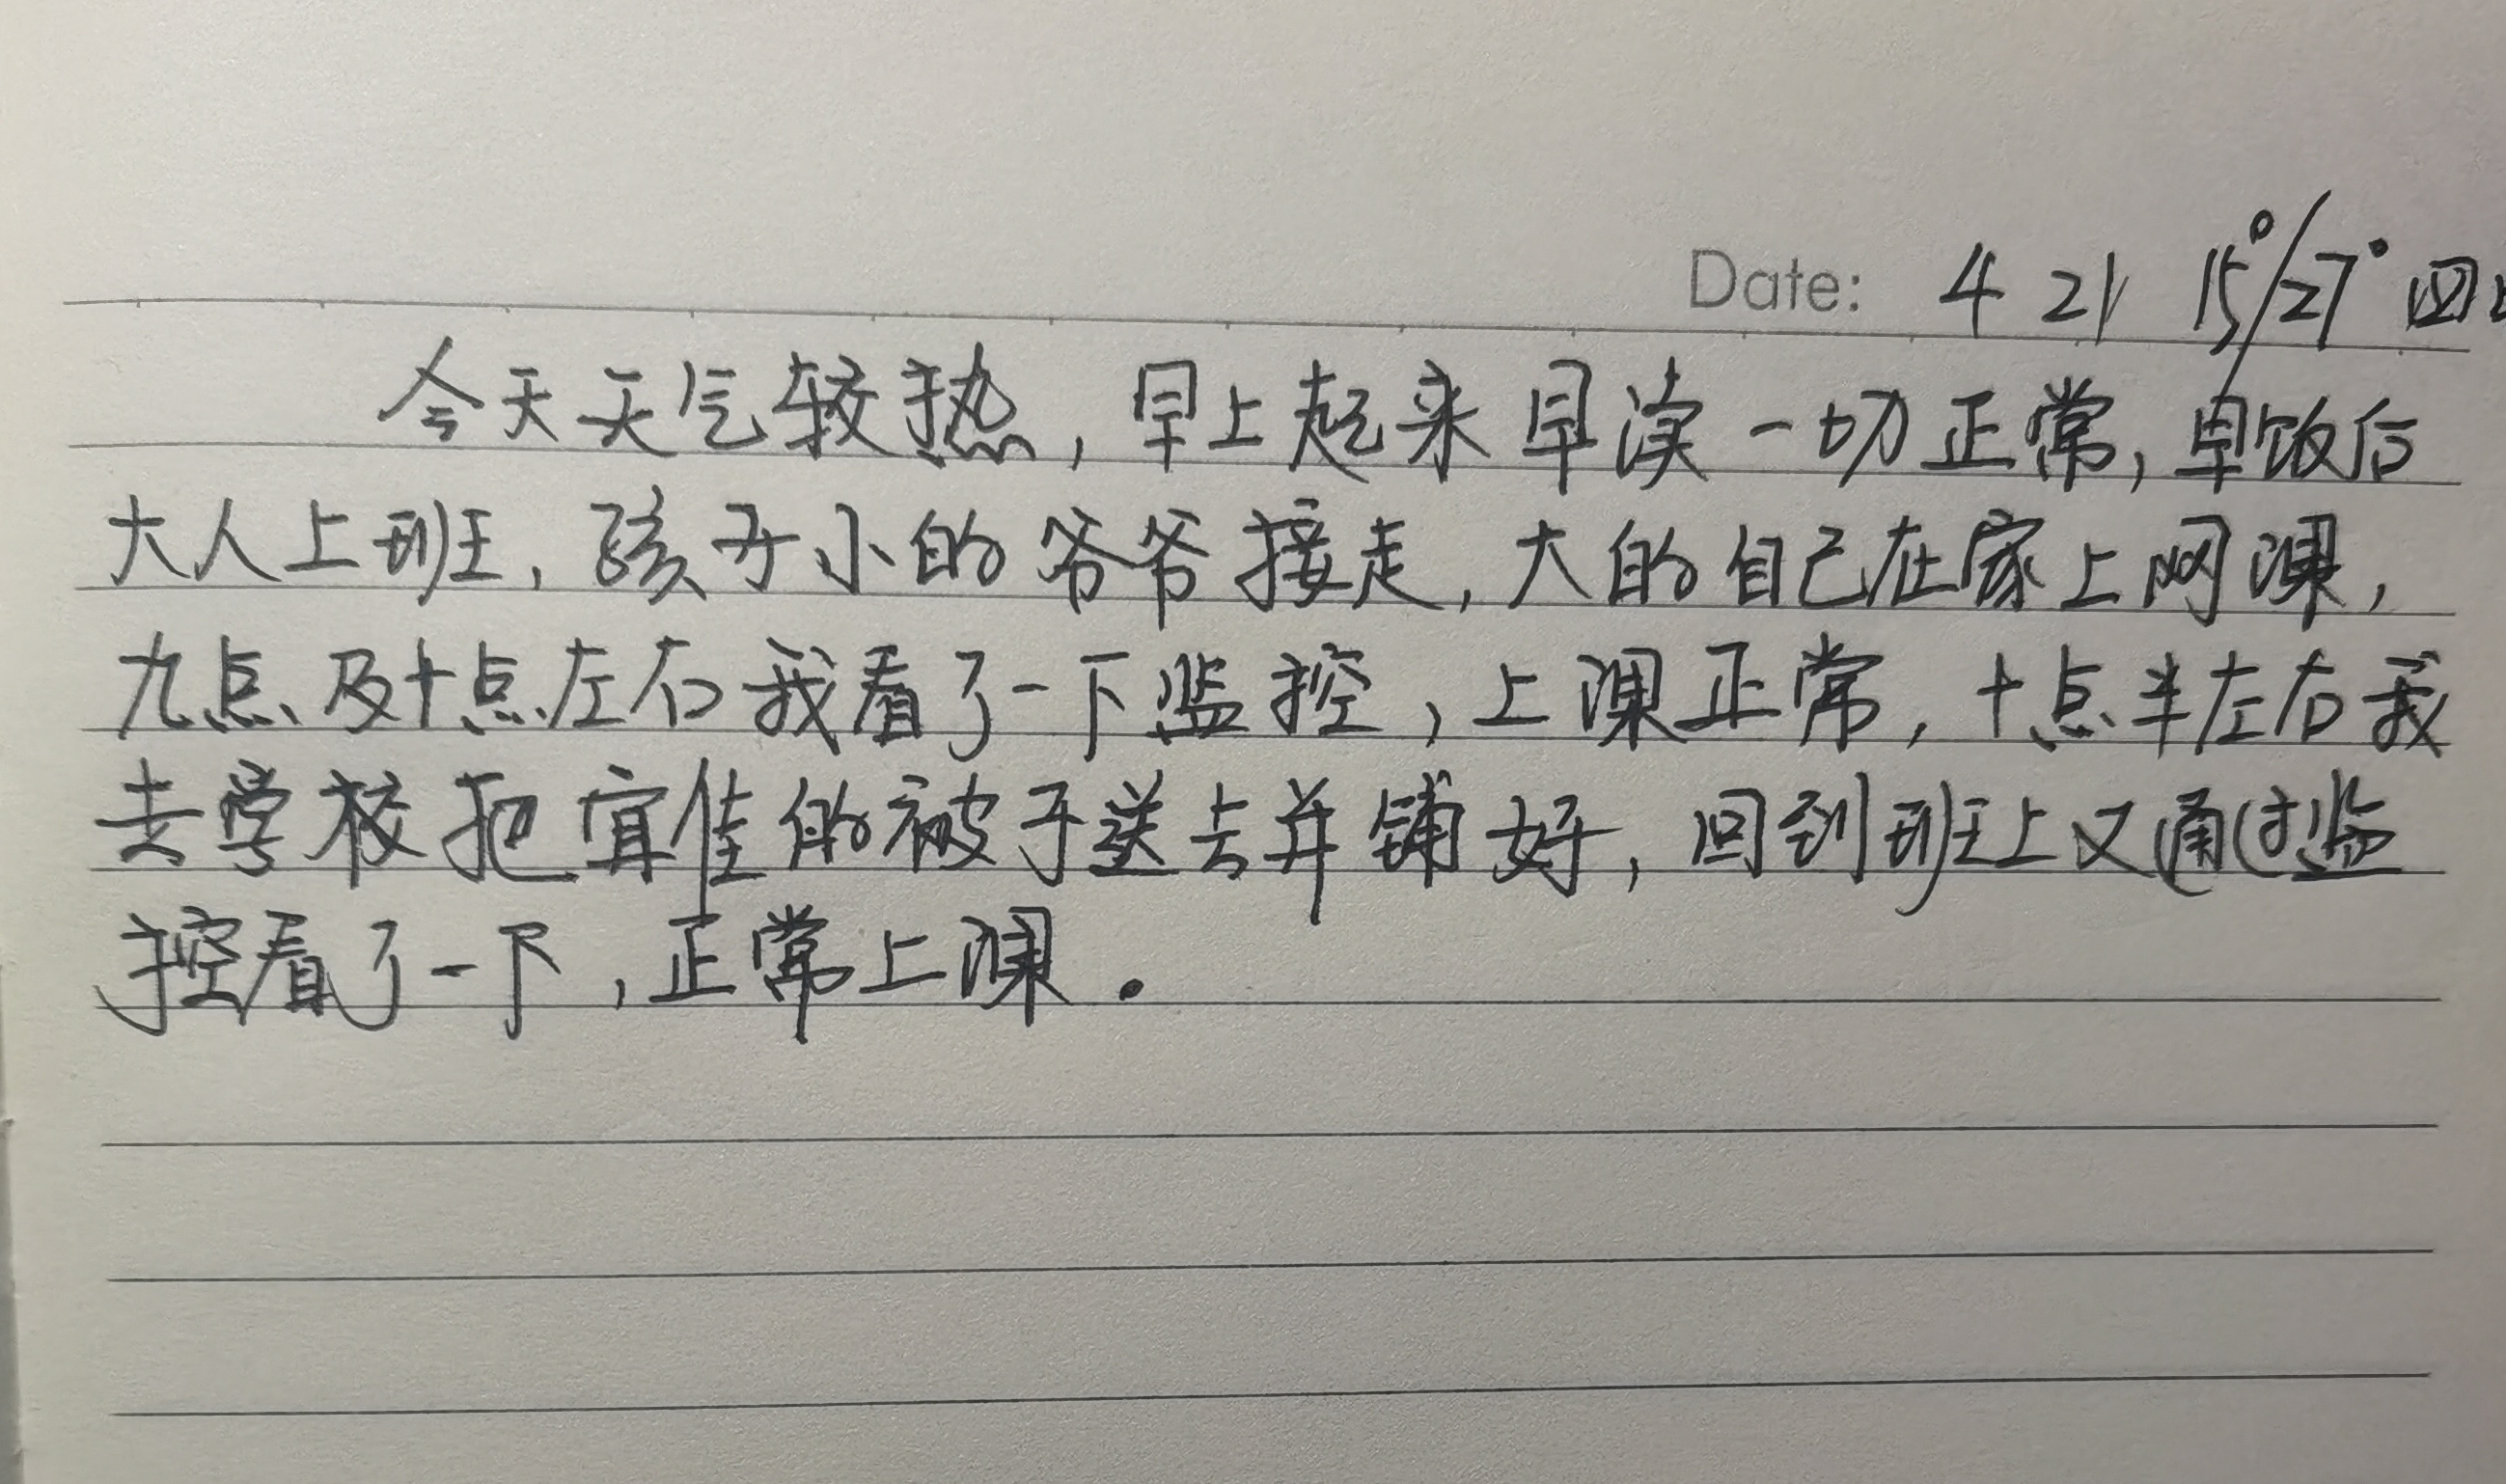 Date: 4 21 15°/27° 四
今天天气较热,早上起来早读一切正常,早饭后
大人上班,孩子小的爷爷接走,大的自己在家上网课,
九点及十点左右我看了一下监控,上课正常,十点半左右我
去学校把宜佳的被子送去并铺好,回到班上又通过监
控看了一下,正常上课.